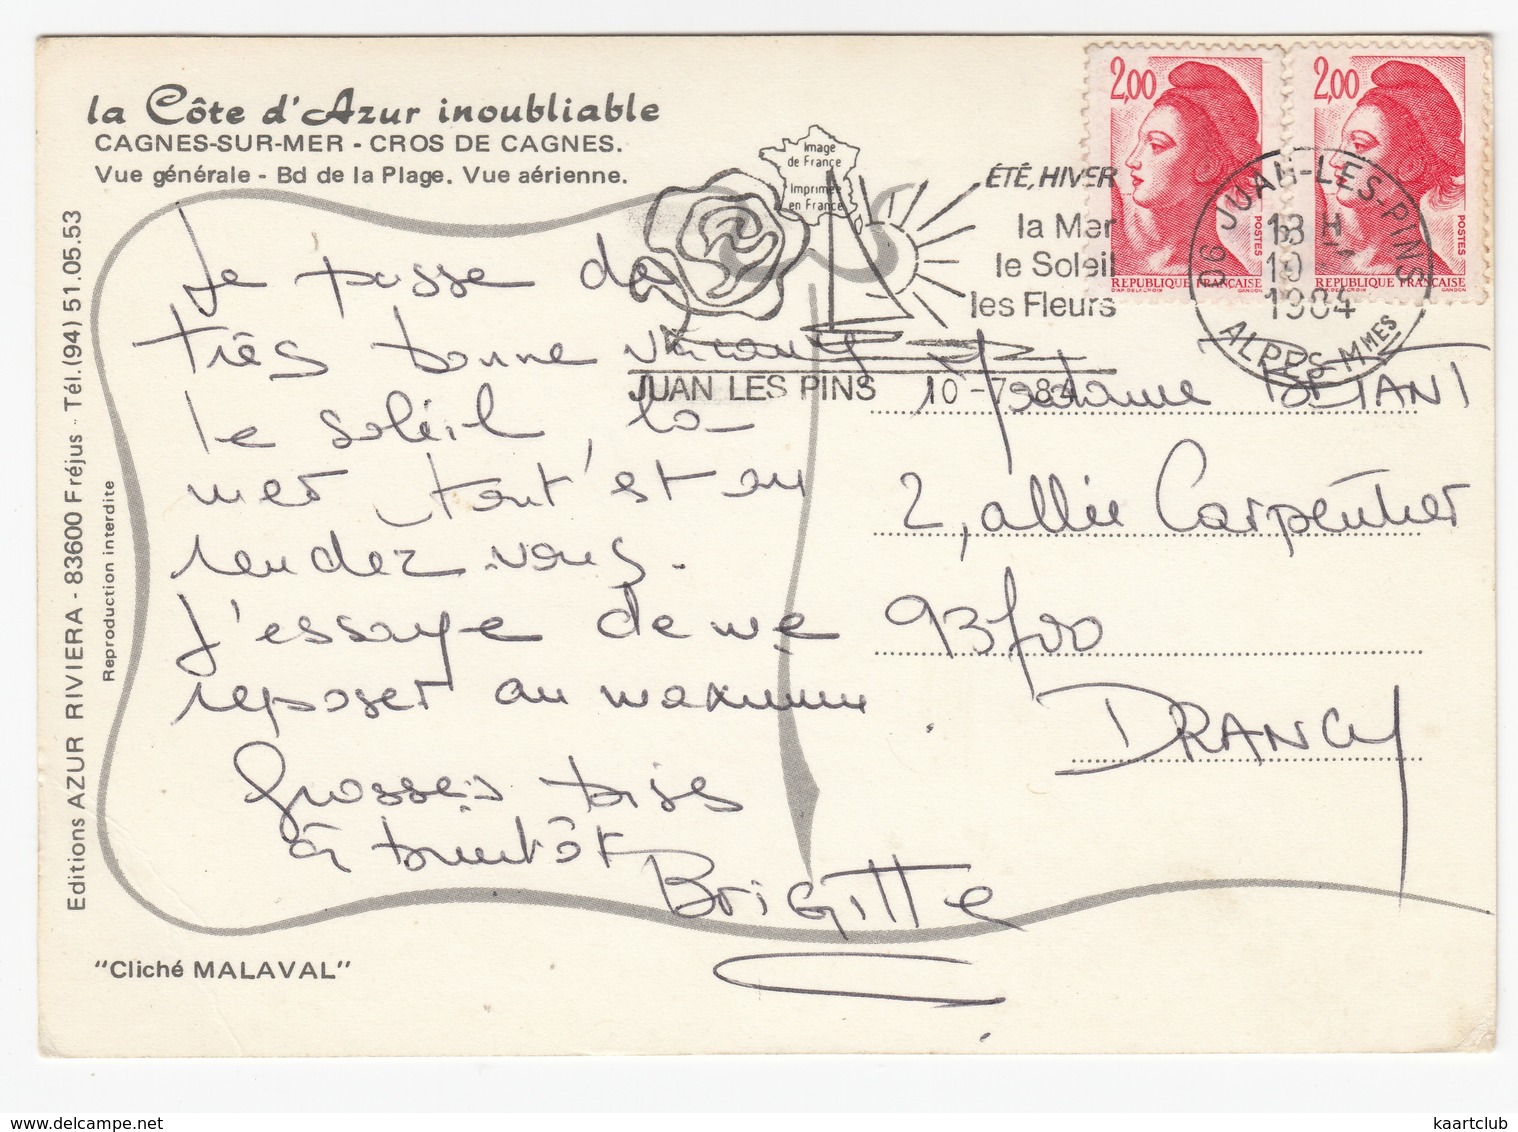 la Côte d'Azur inoubliable
CAGNES-SUR-MER - CROS DE CAGNES.
Vue générale - Bd de la Plage. Vue aérienne.
Image
de France
Imprimée
en France
ÉTÉ, HIVER
la Mer
le Soleil
les Fleurs
JUAN LES PINS 10-7 84
2,00
POSTES
REPUBLIQUE FRANÇAISE
D'AP. DELACROIX GANDON
2,00
POSTES
REPUBLIQUE FRANÇAISE
D'AP. DELACROIX GANDON
06 JUAN-LES-PINS
18 H
10 - 7
1984
ALPES-MMES
Je passe de
très bonne vacances
le soleil, la
mer tout est au
rendez-vous.
J'essaye de me
reposer au maximum
Grosses bises
à bientôt
Brigitte
Madame
2, allée Carpentier
93700
DRANCY
Editions AZUR RIVIERA - 83600 Fréjus - Tél. (94) 51.05.53
Reproduction interdite
"Cliché MALAVAL"
kaartclub